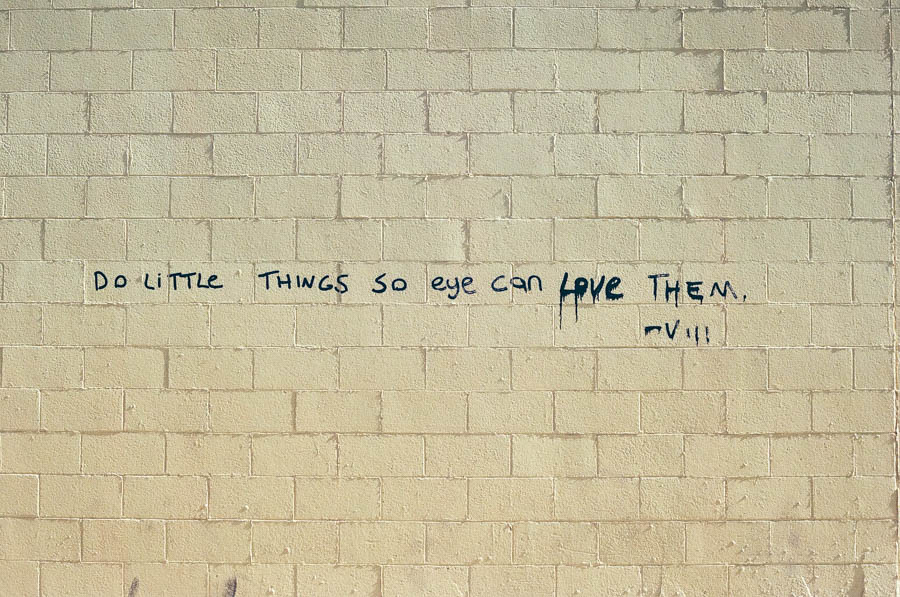 DO LiTTLE THINGS SO eye can LOVE THEM.
-VIII